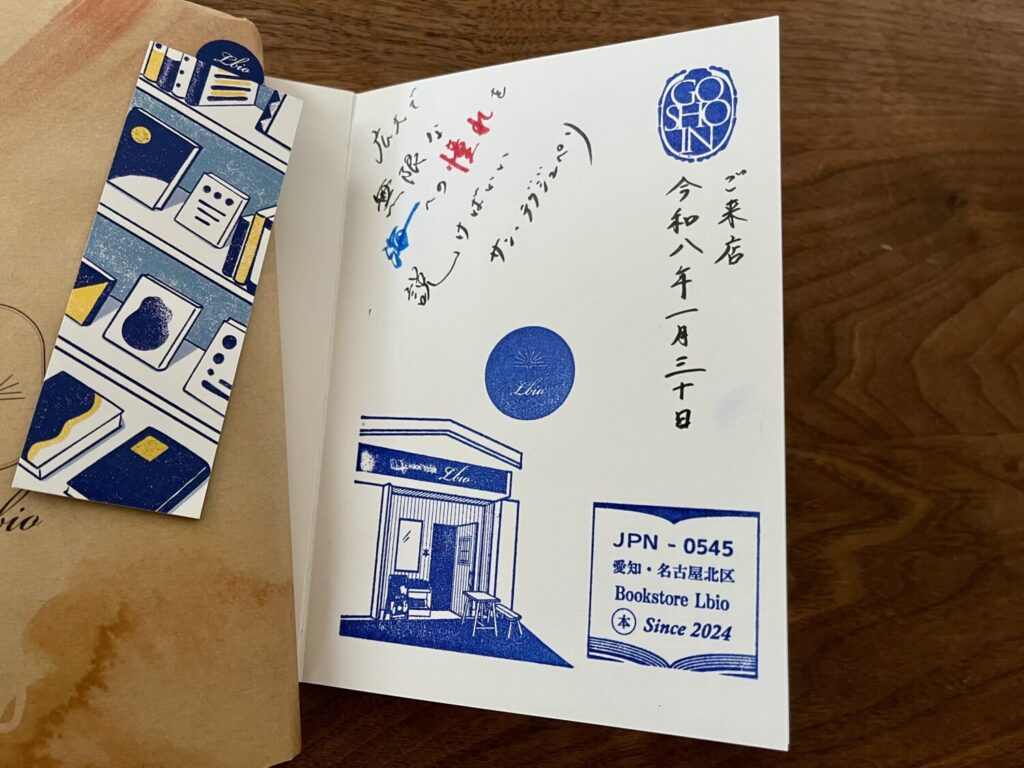 Lbio
GO
SHO
IN
ご来店
令和八年一月三十日
広大で
無限な
海への憧れを
説けばいい
サン・テグジュペリ
Lbio
Lbio
本
JPN - 0545
愛知・名古屋北区
Bookstore Lbio
本 Since 2024
bio